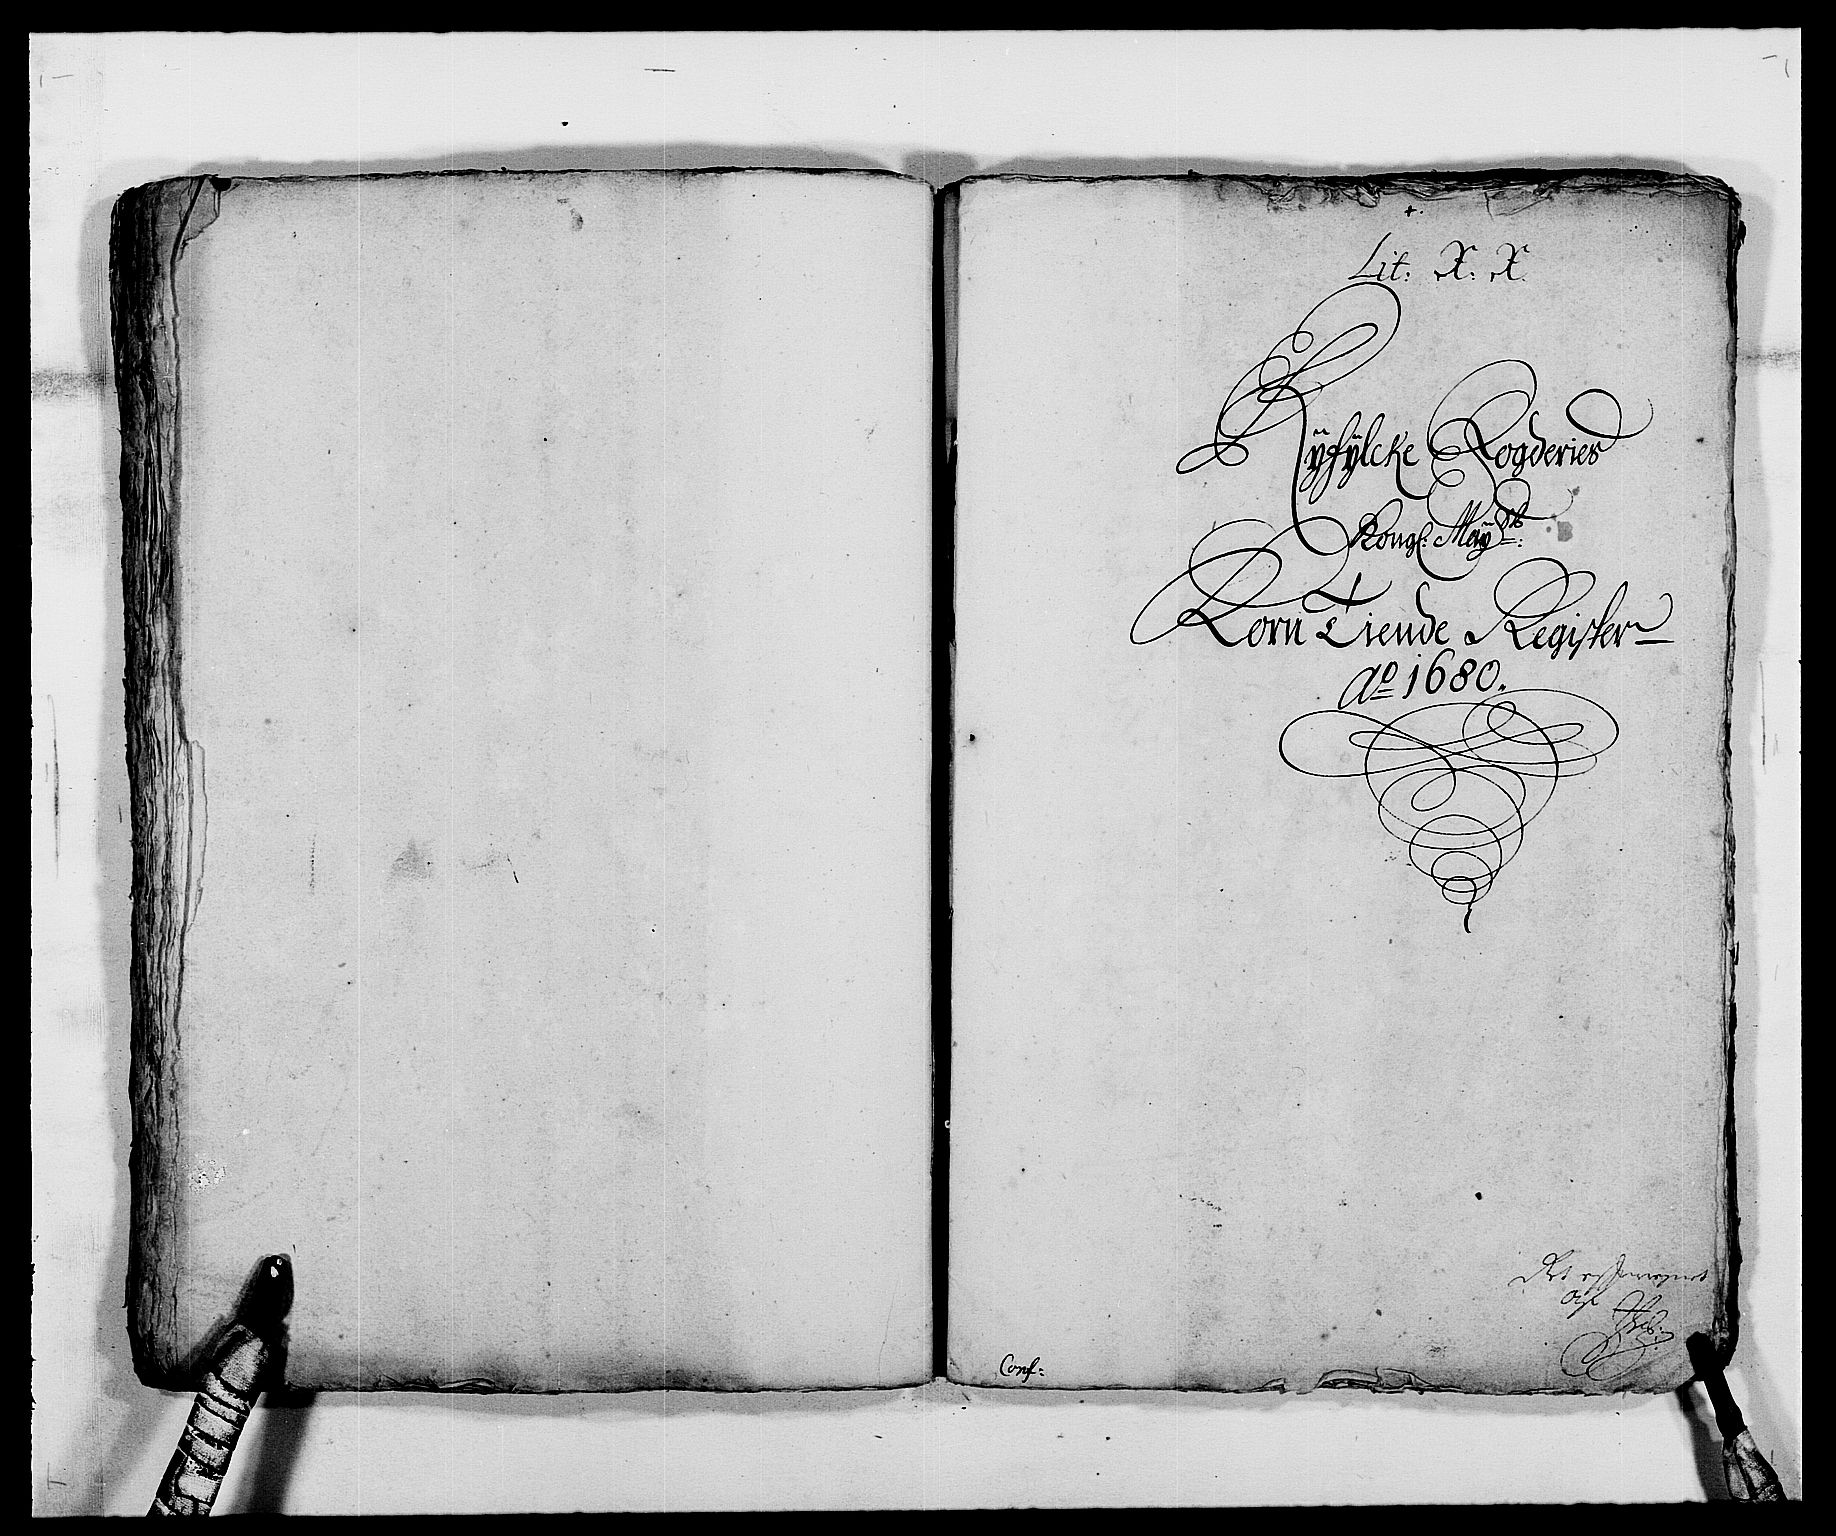 Lit: X: X.
Ryfÿlcke Fogderies
Kongl: Maÿ:ts
Korn Tiende Register
Ao 1680.
Det
Conf: